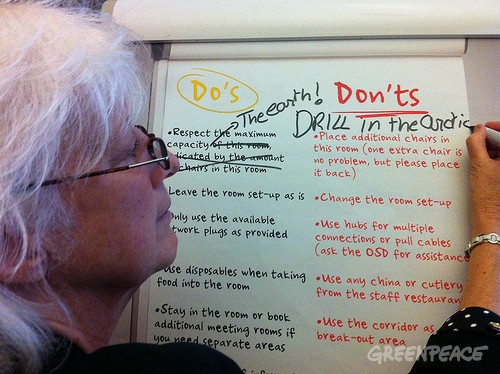 Do's
The earth!
Don'ts
DRILL in the Arctic
•Respect the maximum
capacity of this room,
licated by the amount
chairs in this room
Leave the room set-up as is
Only use the available
twork plugs as provided
Use disposables when taking
food into the room
•Stay in the room or book
additional meeting rooms if
you need separate areas
•Place additional chairs in
this room (one extra chair is
no problem, but please place
it back)
•Change the room set-up
•Use hubs for multiple
connections or pull cables
(ask the OSD for assistance
•Use any china or cutlery
from the staff restaurant
•Use the corridor as
break-out area
GREENPEACE